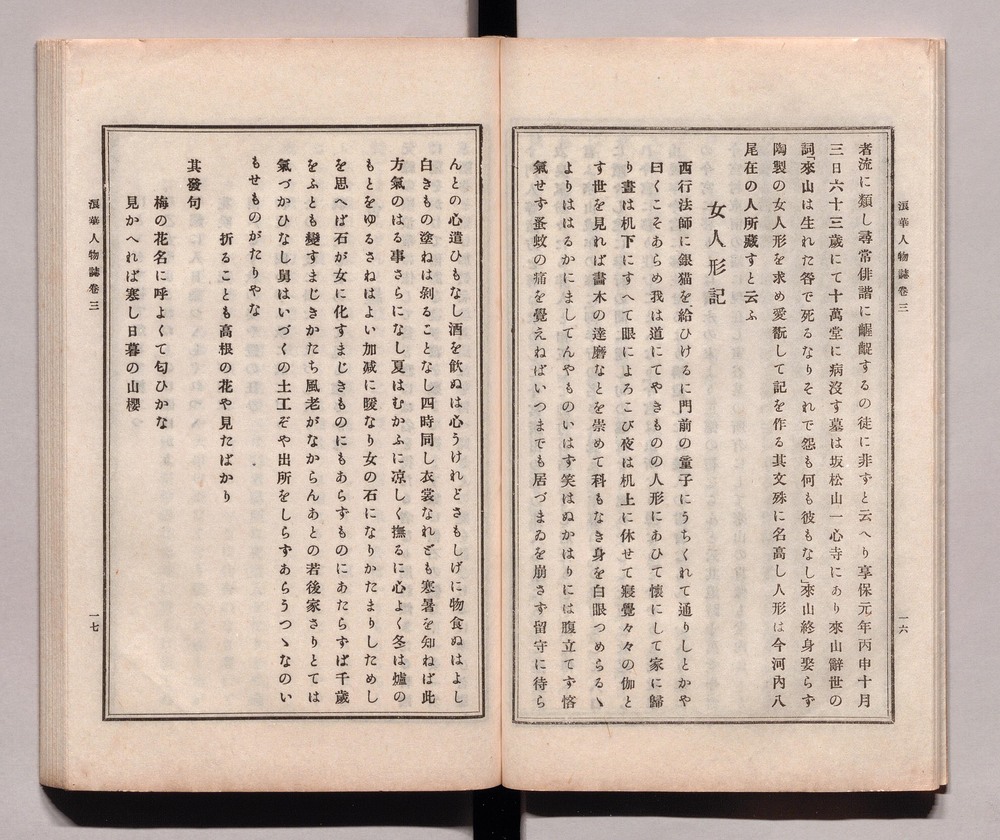 浪華人物誌卷三
一六
者流に類し尋常俳諧に齷齪するの徒に非ずと云へり享保元年丙申十月
三日六十三歳にて十萬堂に病沒す墓は坂松山一心寺にあり來山辭世の
詞「來山は生れた咎で死るなりそれで怨も何も彼もなし」來山終身娶らず
陶製の女人形を求め愛翫して記を作る其文殊に名高し人形は今河內八
尾在の人所藏すと云ふ
女人形記
西行法師に銀猫を給ひけるに門前の童子にうちくれて通りしとかや
曰くこそあらめ我は道にてやきものの人形にあひて懷にして家に歸
り晝は机下にすへて眼によろこび夜は机上に休せて寢覺々々の伽と
す世を見れば晝木の達磨なとを崇めて科もなき身を白眼つめらるゝ
よりははるかにましてんやものいはす笑はぬかはりには腹立てず悋
氣せす蚤蚊の痛を覺えねばいつまでも居づまゐを崩さす留守に待ら
んとの心遣ひもなし酒を飮ぬは心うけれどさもしげに物食ぬはよし
白きもの塗ねは剝ることなし四時同し衣裳なれども寒暑を知ねば此
方氣のはる事さらになし夏はむかふに凉しく撫るに心よく冬は爐の
もとをゆるさねはよい加减に暖なり女の石になりかたまりしためし
を思へば石が女に化すまじきものにもあらずものにあたらずば千歲
をふとも變すまじきかたち風老がなからんあとの若後家さりとては
氣づかひなし舅はいづくの土工ぞや出所をしらずあらうつゝなのい
もせものがたりやな
折ることも高根の花や見たばかり
其發句
梅の花名に呼よくて匂ひかな
見かへれば寒し日暮の山櫻
浪華人物誌卷三
一七